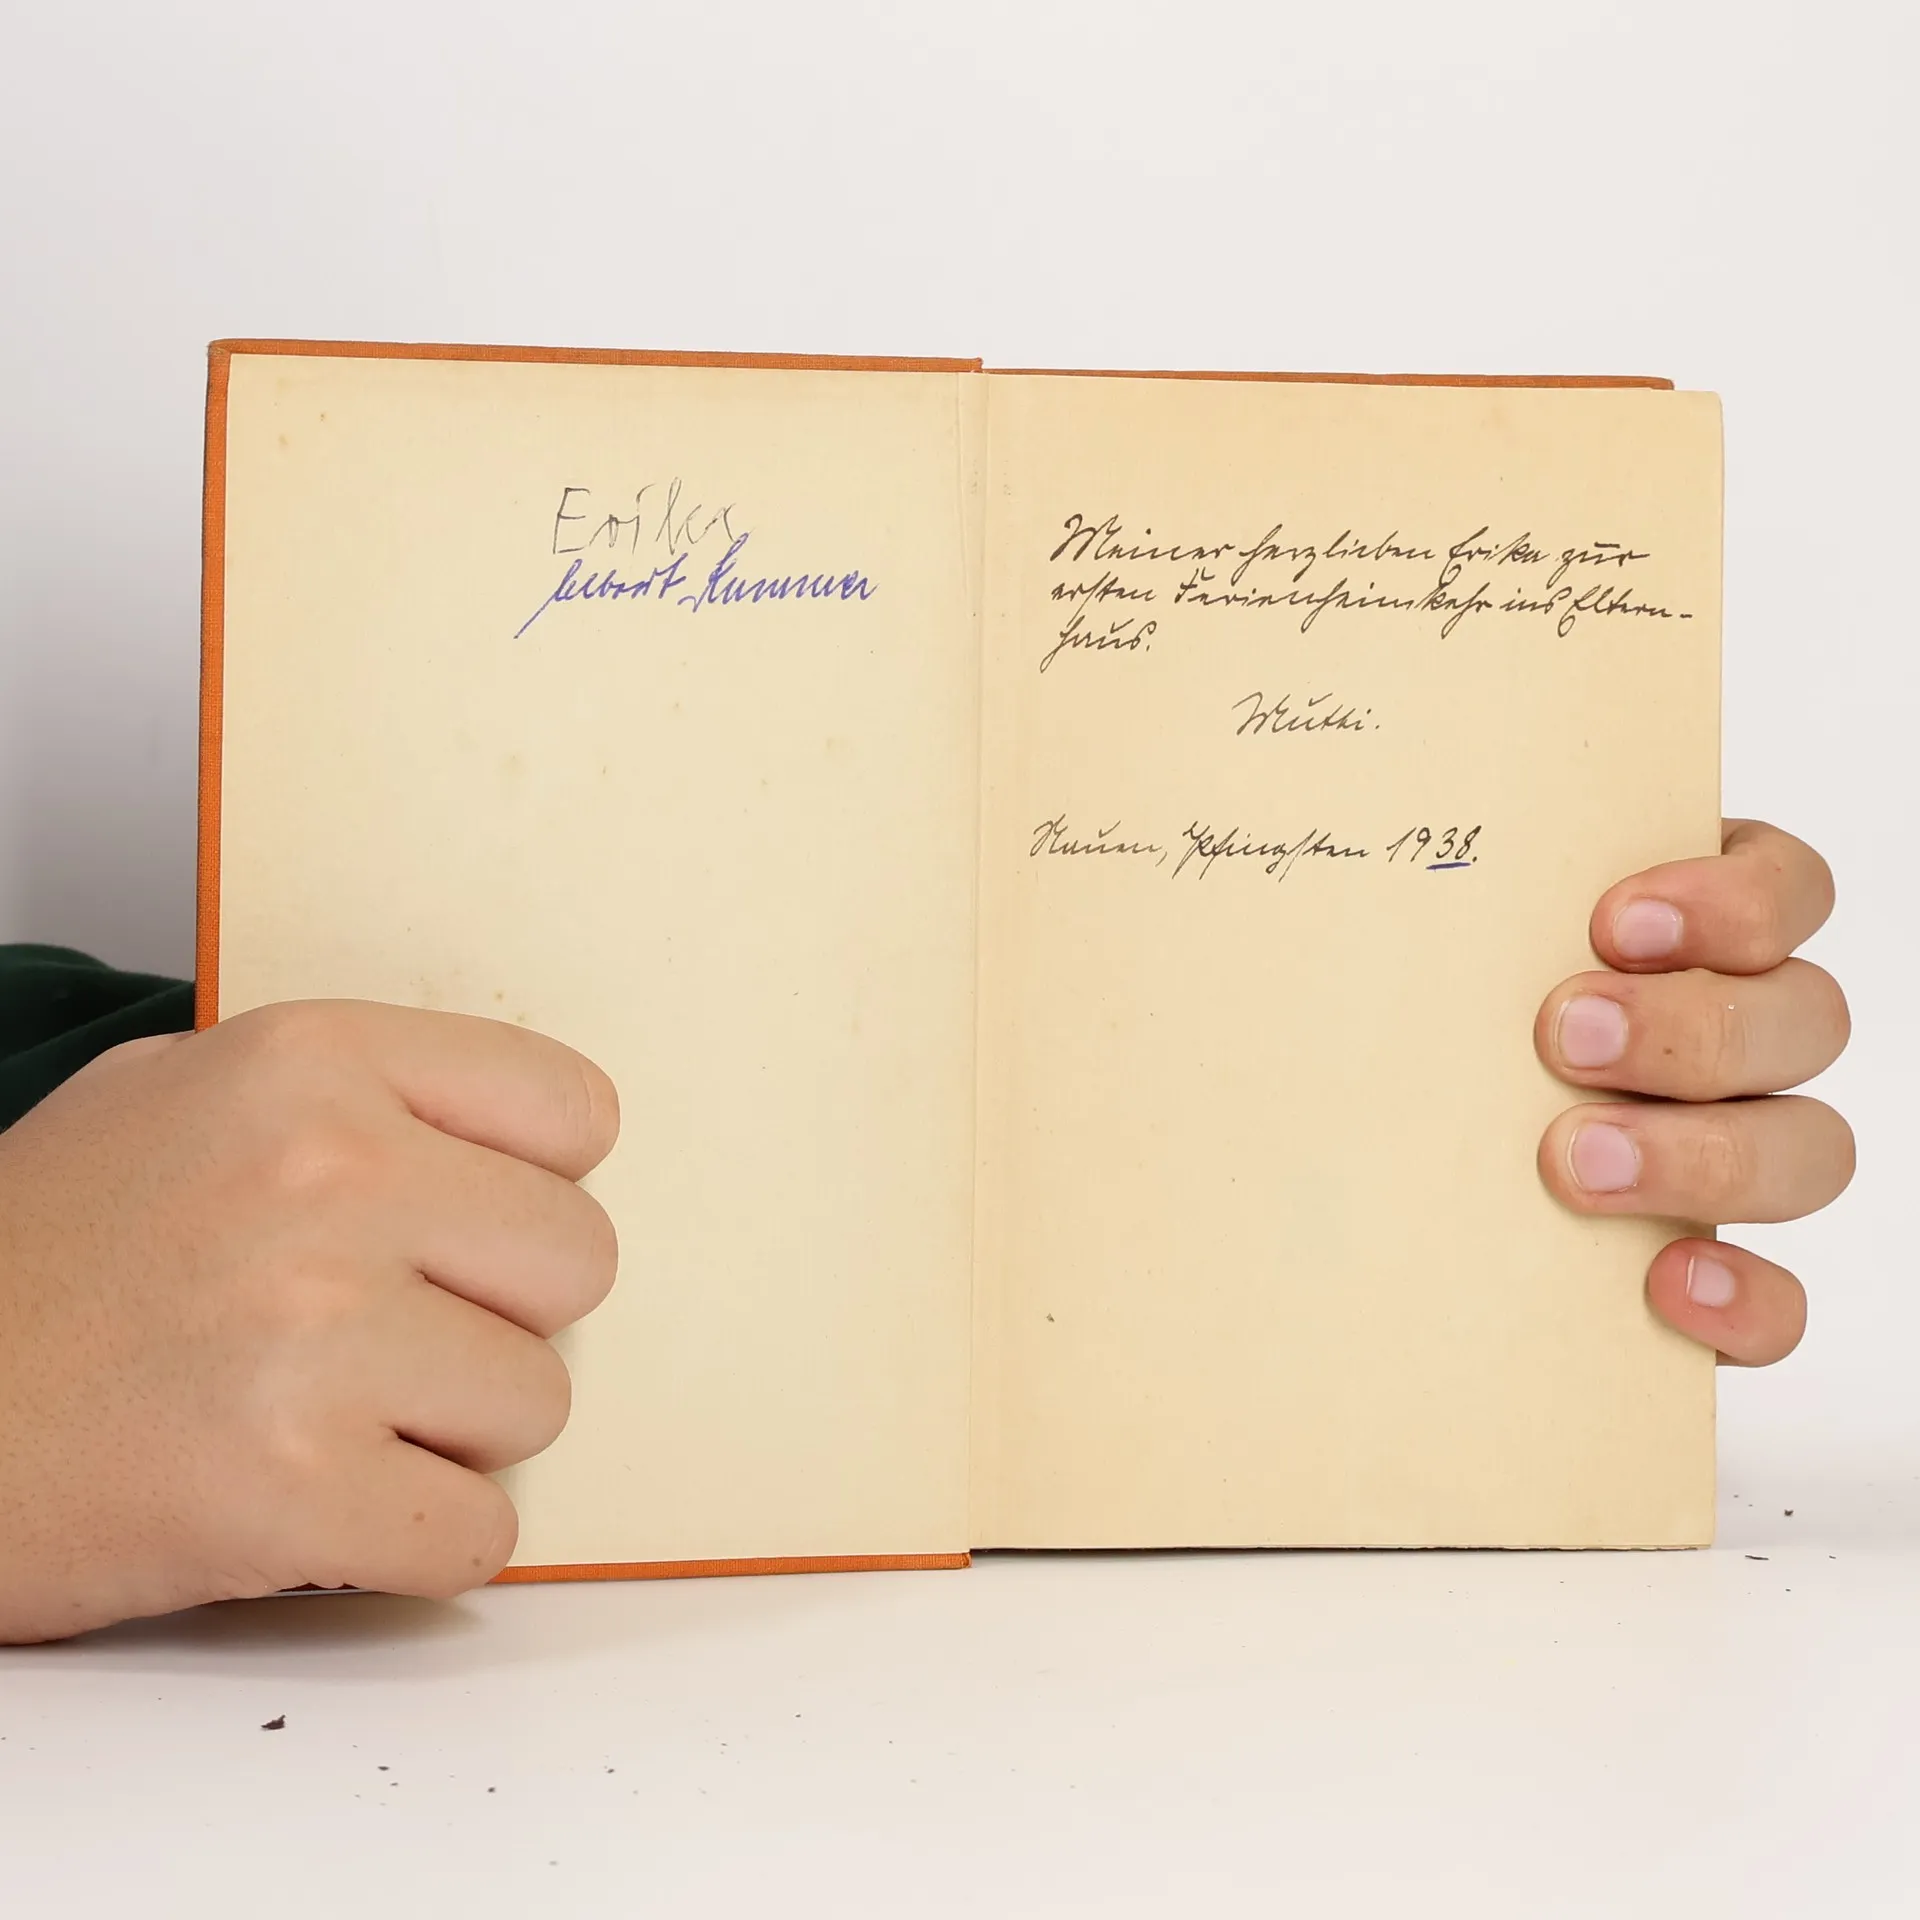 Erika
Albert Kummer
Meiner herzlieben Erika zur
ersten Ferienheimkehr ins Eltern-
haus.
Mutti.
Nauen, Pfingsten 1938.